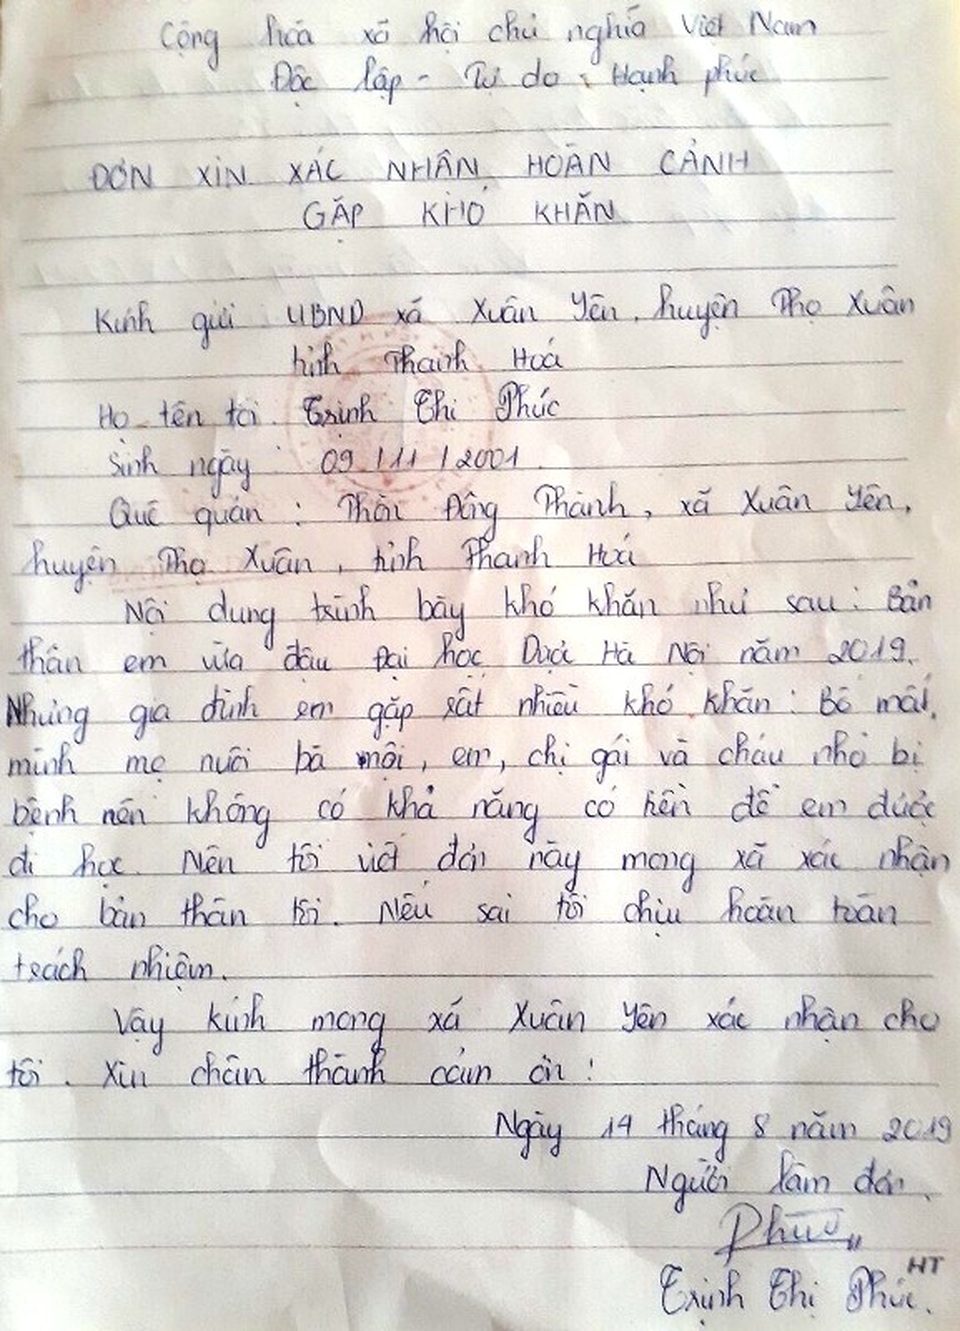 Cộng hoá xã hội chủ nghĩa Việt Nam
Độc lập - Tự do - Hạnh phúc
ĐƠN XIN XÁC NHẬN HOÀN CẢNH
GẶP KHÓ KHĂN
Kính gửi : UBND xã Xuân Yên, huyện Thọ Xuân
tỉnh Thanh Hoá
Họ tên tôi : Trịnh Thị Phúc
Sinh ngày : 09 / 11 / 2001
Quê quán : Thôn Đông Thành, xã Xuân Yên,
huyện Thọ Xuân, tỉnh Thanh Hoá
Nội dung trình bày khó khăn như sau : Bản
thân em vừa đậu Đại học Dược Hà Nội năm 2019.
Nhưng gia đình em gặp rất nhiều khó khăn : Bố mất,
mình mẹ nuôi bà nội, em, chị gái và cháu nhỏ bị
bệnh nên không có khả năng có tiền để em được
đi học. Nên tôi viết đơn này mong xã xác nhận
cho bản thân tôi. Nếu sai tôi chịu hoàn toàn
trách nhiệm.
Vậy kính mong xã Xuân Yên xác nhận cho
tôi. Xin chân thành cảm ơn !
Ngày 14 tháng 8 năm 2019
Người làm đơn
Phúc
HT
Trịnh Thị Phúc.